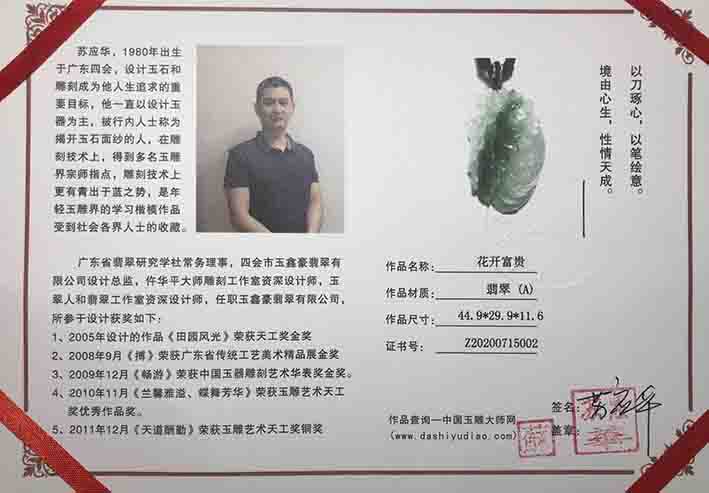 苏应华，1980年出生
于广东四会，设计玉石和
雕刻成为他人生追求的重
要目标，他一直以设计玉
器为主，被行内人士称为
揭开玉石面纱的人，在雕
刻技术上，得到多名玉雕
界宗师指点，雕刻技术上
更有青出于蓝之势，是年
轻玉雕界的学习楷模作品
受到社会各界人士的收藏。
广东省翡翠研究学社常务理事，四会市玉鑫豪翡翠有
限公司设计总监，仵华平大师雕刻工作室资深设计师，玉
翠人和翡翠工作室资深设计师，任职玉鑫豪翡翠有限公司，
所参于设计获奖如下：
1、2005年设计的作品《田园风光》荣获天工奖金奖
2、2008年9月《搏》荣获广东省传统工艺美术精品展金奖。
3、2009年12月《畅游》荣获中国玉器雕刻艺术华表奖金奖。
4、2010年11月《兰馨雅溢、蝶舞芳华》荣获玉雕艺术天工
奖优秀作品奖。
5、2011年12月《天道酬勤》荣获玉雕艺术天工奖铜奖
以刀琢心，以笔绘意。
境由心生，性情天成。
作品名称：花开富贵
作品材质：翡翠 (A)
作品尺寸：44.9*29.9*11.6
证书号：Z20200715002
签名：苏应华
盖章：
作品查询—中国玉雕大师网
(www.dashiyudiao.com)